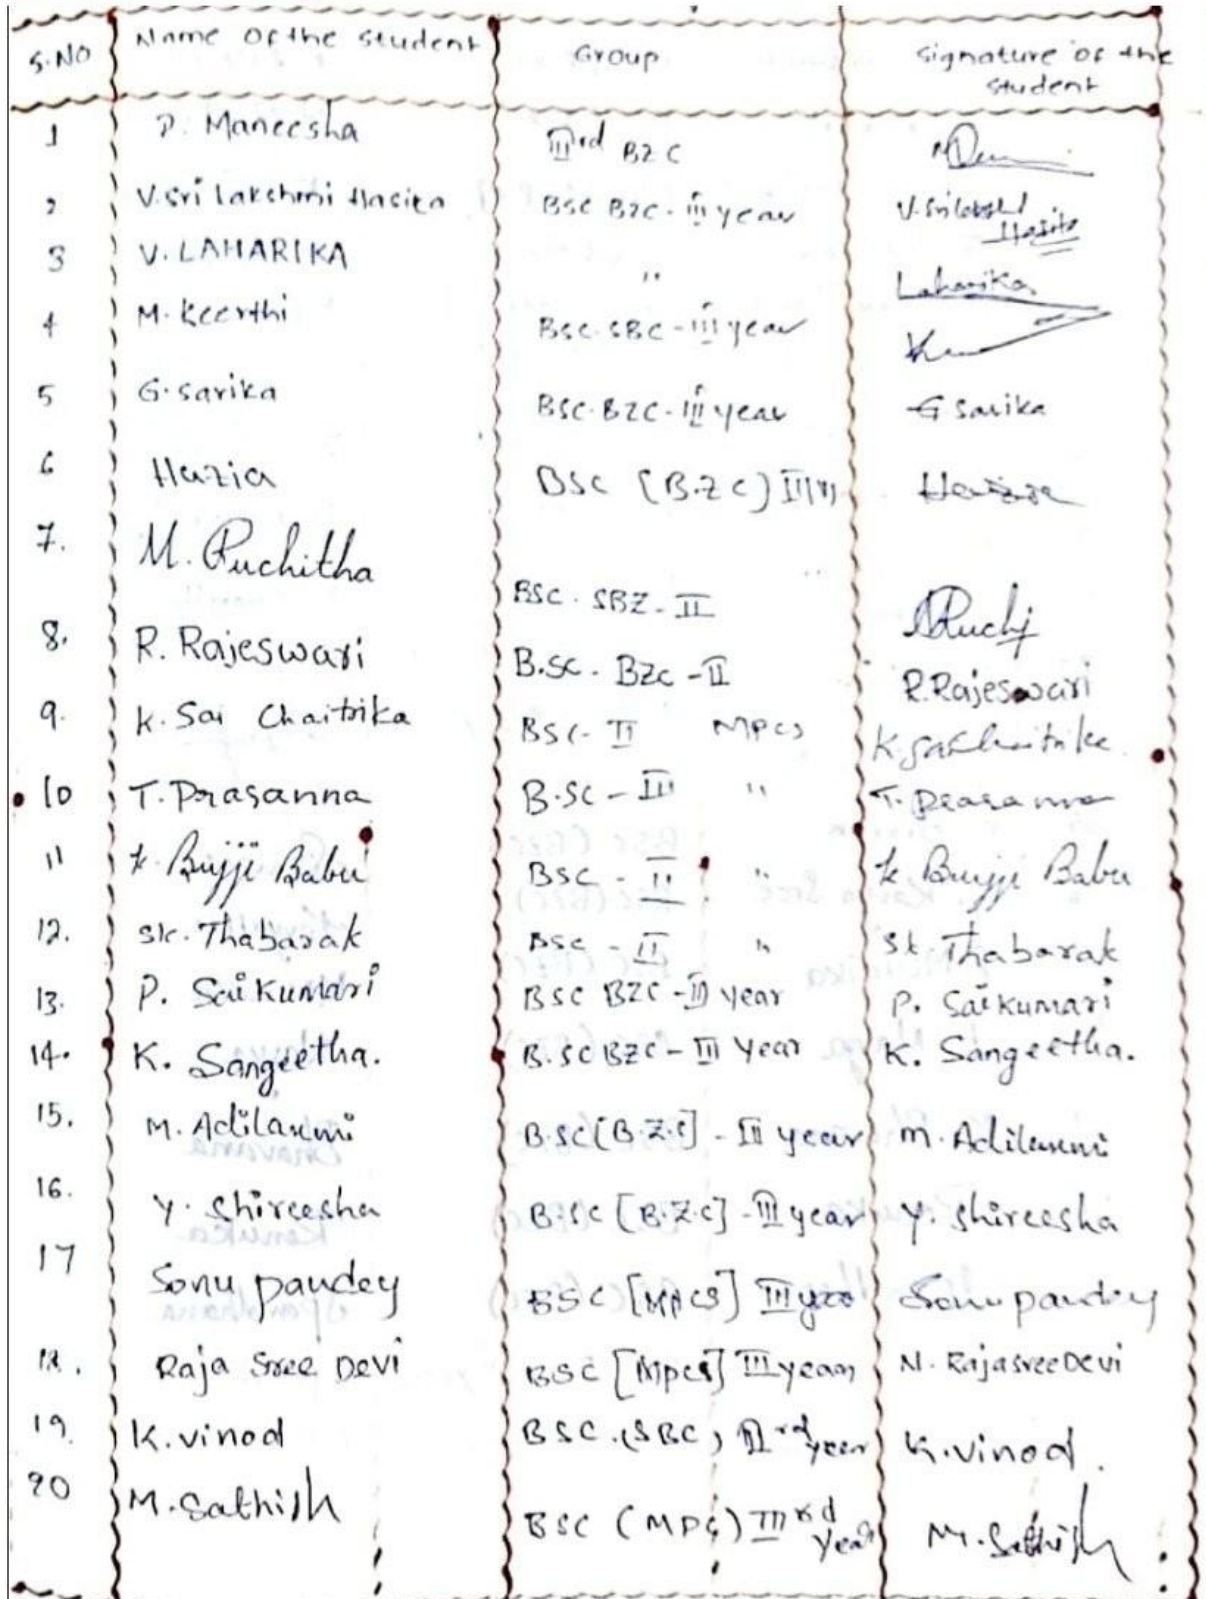 S.NO Name Of the Student Group Signature of the
student
1 P. Maneesha IIIrd BZC
2 V. Sri Lakshmi Hasika BSC BZC - III year V. Srilakshmi
Hasika
3 V. LAHARIKA " Laharika
4 M. Keerthi BSC. SBC - III year
5 G. Sarika BSC. BZC - III year G Sarika
6 Hazia BSC [B.Z C] III Hazia
7. M. Ruchitha BSC. SBZ - II MRuchi
8. R. Rajeswari B.SC. BZC - II R. Rajeswari
9. K. Sai Chaitrika BSC - II MPCS K Sai Chaitrika
10 T. Prasanna B.SC - III " T. Prasanna
11 K Bujji Babu BSC - II " K Bujji Babu
12. SK. Thabarak BSC - II " SK Thabarak
13. P. Sai Kumari BSC BZC - III year P. Saikumari
14. K. Sangeetha. B.SC BZC - III Year K. Sangeetha.
15. M. Adilaxmi B.SC [B.Z.C] - III year M. Adilaxmi
16. Y. Shireesha B.SC [B.Z.C] - III year Y. Shireesha
17 Sonu pandey BSC [MPCS] III Sonu pandey
18. Raja Sree Devi BSC [MPCS] III year N. Rajasree Devi
19. K. vinod BSC. (SBC) IIIrd year K. vinod.
20 M. Sathish BSC (MPC) IIIrd Year M. Sathish